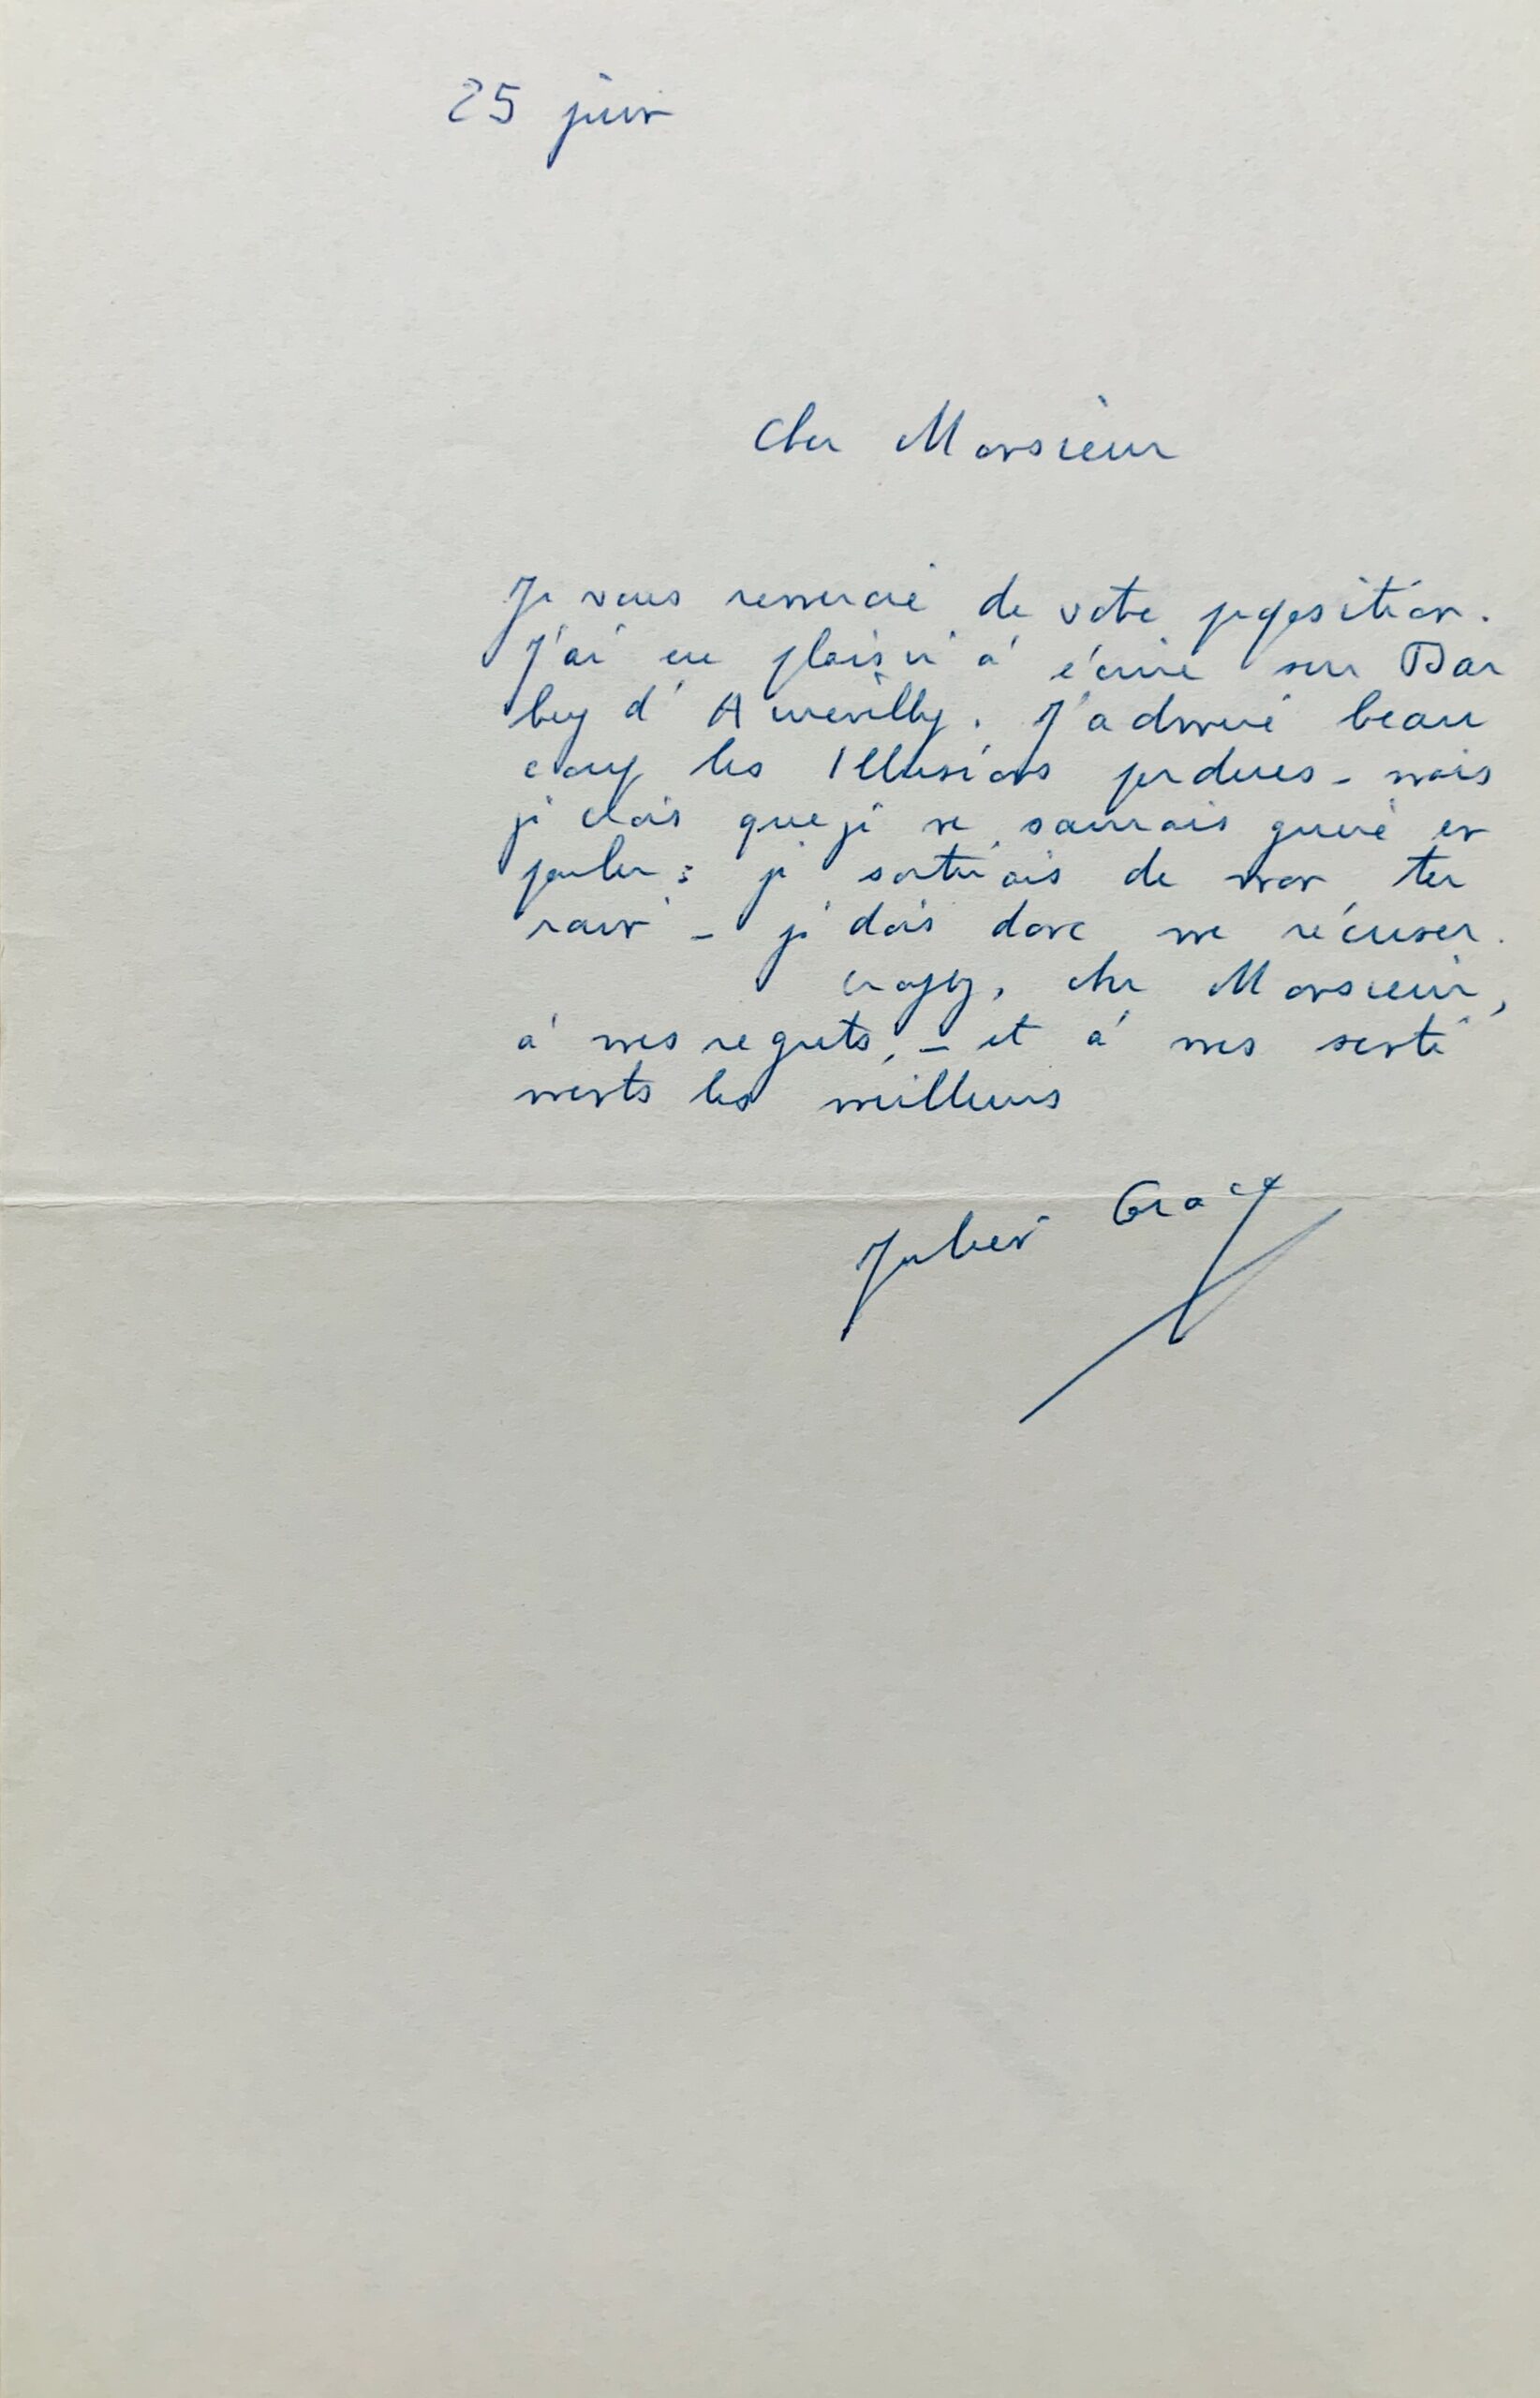 25 juin
Cher Monsieur
Je vous remercie de votre proposition.
J'ai eu plaisir à écrire sur Bar
bey d'Aurevilly. J'admire beau
coup les Illusions perdues - mais
je crois que je ne saurais guère en
parler : je sortirais de mon ter
rain - je dois donc me récuser.
Croyez, cher Monsieur,
à mes regrets, - et à mes senti
ments les meilleurs
Julien Gracq